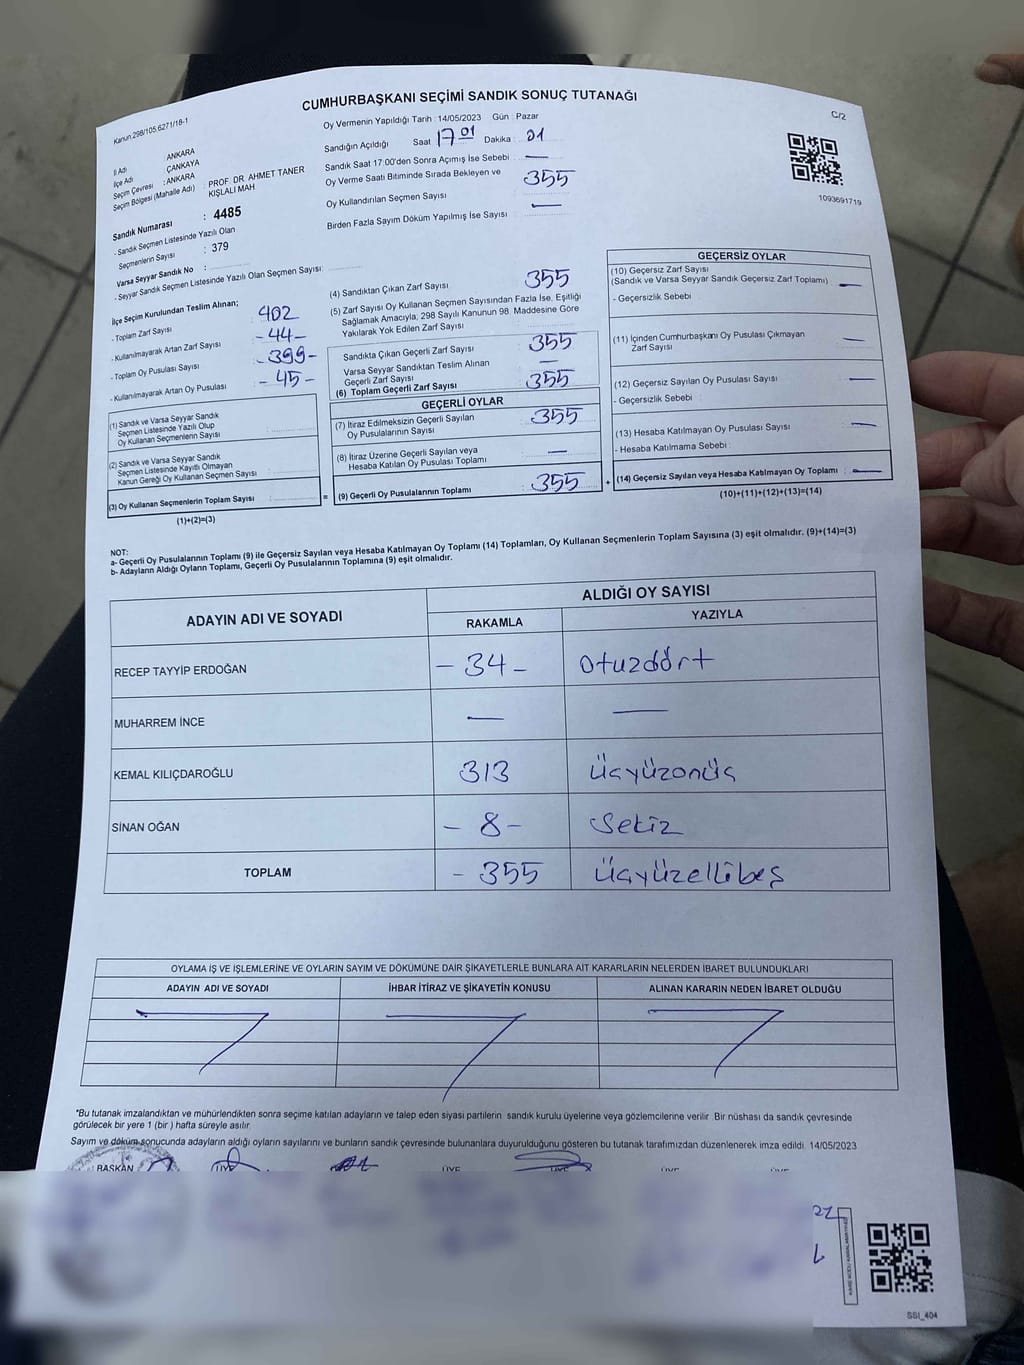 CUMHURBAŞKANI SEÇİMİ SANDIK SONUÇ TUTANAĞI
Kanun.298/105,6271/18-1
C/2
Oy Vermenin Yapıldığı Tarih : 14/05/2023 Gün : Pazar
Sandığın Açıldığı Saat 17 01 Dakika : 01
Sandık Saat 17:00'den Sonra Açımış İse Sebebi : —
Oy Verme Saati Bitiminde Sırada Bekleyen ve
Oy Kullandırılan Seçmen Sayısı : 355
Birden Fazla Sayım Döküm Yapılmış İse Sayısı : —
1093691719
İl Adı : ANKARA
İlçe Adı : ÇANKAYA
Seçim Çevresi : ANKARA
Seçim Bölgesi (Mahalle Adı) : PROF. DR. AHMET TANER
KIŞLALI MAH
Sandık Numarası : 4485
- Sandık Seçmen Listesinde Yazılı Olan
Seçmenlerin Sayısı : 379
Varsa Seyyar Sandık No :
- Seyyar Sandık Seçmen Listesinde Yazılı Olan Seçmen Sayısı:
İlçe Seçim Kurulundan Teslim Alınan;
- Toplam Zarf Sayısı 402
- Kullanılmayarak Artan Zarf Sayısı -44-
- Toplam Oy Pusulası Sayısı -399-
- Kullanılmayarak Artan Oy Pusulası -45-
(1) Sandık ve Varsa Seyyar Sandık
Seçmen Listesinde Yazılı Olup
Oy Kullanan Seçmenlerin Sayısı
(2) Sandık ve Varsa Seyyar Sandık
Seçmen Listesinde Kayıtlı Olmayan
Kanun Gereği Oy Kullanan Seçmen Sayısı
(3) Oy Kullanan Seçmenlerin Toplam Sayısı =
(1)+(2)=(3)
(4) Sandıktan Çıkan Zarf Sayısı 355
(5) Zarf Sayısı Oy Kullanan Seçmen Sayısından Fazla İse, Eşitliği
Sağlamak Amacıyla; 298 Sayılı Kanunun 98. Maddesine Göre
Yakılarak Yok Edilen Zarf Sayısı
Sandıkta Çıkan Geçerli Zarf Sayısı 355
Varsa Seyyar Sandıktan Teslim Alınan
Geçerli Zarf Sayısı —
(6) Toplam Geçerli Zarf Sayısı 355
GEÇERLİ OYLAR
(7) İtiraz Edilmeksizin Geçerli Sayılan
Oy Pusulalarının Sayısı 355
(8) İtiraz Üzerine Geçerli Sayılan veya
Hesaba Katılan Oy Pusulası Toplamı —
(9) Geçerli Oy Pusulalarının Toplamı : 355 +
GEÇERSİZ OYLAR
(10) Geçersiz Zarf Sayısı
(Sandık ve Varsa Seyyar Sandık Geçersiz Zarf Toplamı) —
- Geçersizlik Sebebi :
(11) İçinden Cumhurbaşkanı Oy Pusulası Çıkmayan
Zarf Sayısı —
(12) Geçersiz Sayılan Oy Pusulası Sayısı —
- Geçersizlik Sebebi :
(13) Hesaba Katılmayan Oy Pusulası Sayısı —
- Hesaba Katılmama Sebebi :
(14) Geçersiz Sayılan veya Hesaba Katılmayan Oy Toplamı —
(10)+(11)+(12)+(13)=(14)
NOT:
a- Geçerli Oy Pusulalarının Toplamı (9) ile Geçersiz Sayılan veya Hesaba Katılmayan Oy Toplamı (14) Toplamları, Oy Kullanan Seçmenlerin Toplam Sayısına (3) eşit olmalıdır. (9)+(14)=(3)
b- Adayların Aldığı Oyların Toplamı, Geçerli Oy Pusulalarının Toplamına (9) eşit olmalıdır.
ADAYIN ADI VE SOYADI
ALDIĞI OY SAYISI
RAKAMLA YAZIYLA
RECEP TAYYİP ERDOĞAN - 34 - otuzdört
MUHARREM İNCE — —
KEMAL KILIÇDAROĞLU 313 üçyüzonüç
SİNAN OĞAN - 8 - Sekiz
TOPLAM - 355 üçyüzellibeş
OYLAMA İŞ VE İŞLEMLERİNE VE OYLARIN SAYIM VE DÖKÜMÜNE DAİR ŞİKAYETLERLE BUNLARA AİT KARARLARIN NELERDEN İBARET BULUNDUKLARI
ADAYIN ADI VE SOYADI İHBAR İTİRAZ VE ŞİKAYETİN KONUSU ALINAN KARARIN NEDEN İBARET OLDUĞU
"Bu tutanak imzalandıktan ve mühürlendikten sonra seçime katılan adayların ve talep eden siyasi partilerin sandık kurulu üyelerine veya gözlemcilerine verilir. Bir nüshası da sandık çevresinde
görülecek bir yere 1 (bir ) hafta süreyle asılır.
Sayım ve döküm sonucunda adayların aldığı oyların sayılarını ve bunların sandık çevresinde bulunanlara duyurulduğunu gösteren bu tutanak tarafımızdan düzenlenerek imza edildi. 14/05/2023
BAŞKAN ÜYE ÜYE ÜYE ÜYE ÜYE
SSI_404